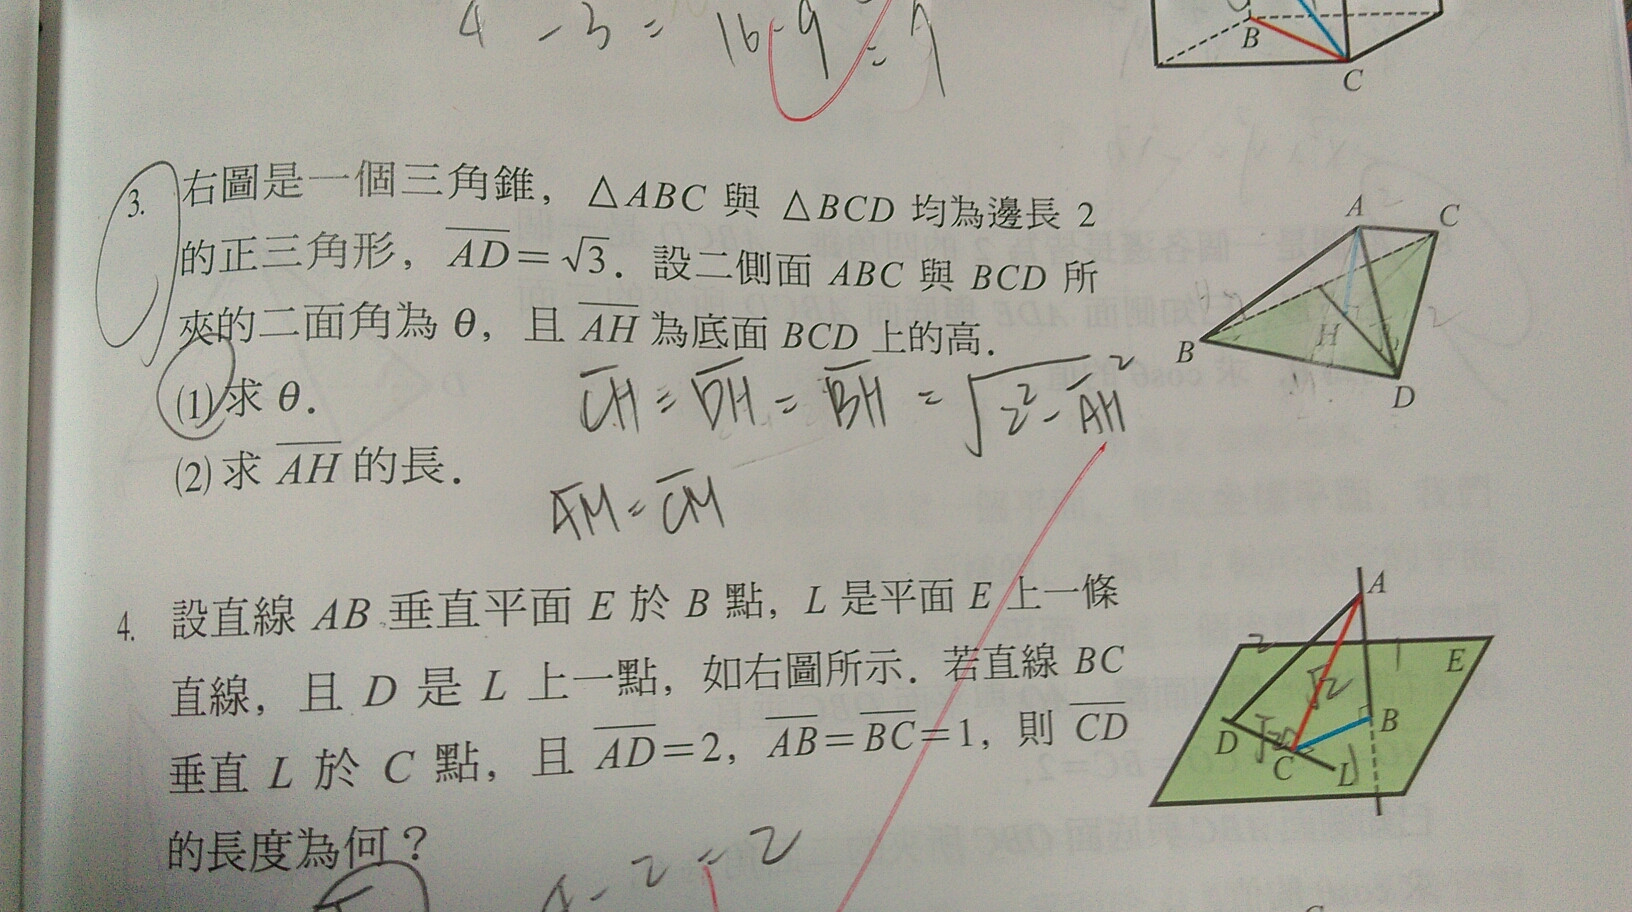 4 - 3 = 16-9 = 7
B
C
3. 右圖是一個三角錐，△ABC 與 △BCD 均為邊長 2
的正三角形，AD=√3．設二側面 ABC 與 BCD 所
夾的二面角為 θ，且 AH 為底面 BCD 上的高．
(1) 求 θ．
(2) 求 AH 的長．
CH = DH = BH = √2²-AH²
AM = CM
A
C
B
H
2
D
4. 設直線 AB 垂直平面 E 於 B 點，L 是平面 E 上一條
直線，且 D 是 L 上一點，如右圖所示．若直線 BC
垂直 L 於 C 點，且 AD=2，AB=BC=1，則 CD
的長度為何？
4-2=2
A
2
1
E
√2
B
D
√2
C
1
L